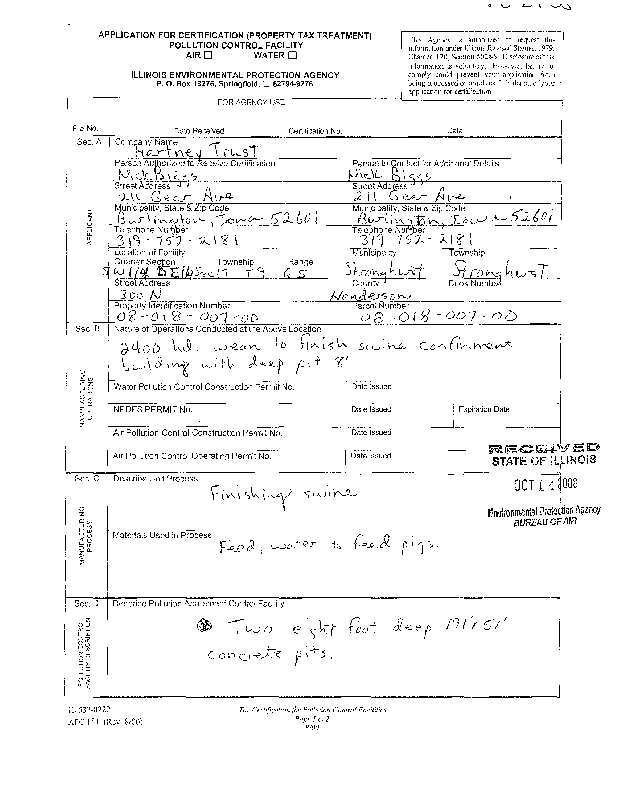 APPLICATION FOR CERTIFICATION (PROPERTY TAX TREATMENT)
POLLUTION CONTROL FACILITY
AIR ☐ WATER ☐
ILLINOIS ENVIRONMENTAL PROTECTION AGENCY
P. O. Box 19276, Springfield, IL 62794-9276
This Agency is authorized to request this
information under Illinois Revised Statutes, 1979,
Disclosure of this
information is voluntary. However, failure to
comply could prevent your application from
being processed or
application for certification.
FOR AGENCY USE
File No. Date Received Certification No. Date
Sec. A Company Name
Hartney Trust
Person Authorized to Receive Certification Person to Contact for Additional Details
Nick Biggs Nick Biggs
Street Address Street Address
211 Gear Ave 211 Gear Ave
Municipality, State & Zip Code Municipality, State & Zip Code
Burlington, Iowa 52601 Burlington, Iowa 52601
Telephone Number Telephone Number
319-752-2181 319 752-2181
Location of Facility Municipality Township
Quarter Section Township Range
T9 Stronghurst Stronghurst
Street Address County Book Number
300 N Henderson
Property Identification Number Parcel Number
08-018-007-00 08-018-007-00
Sec. B Nature of Operations Conducted at the Above Location
2400 hd. wean to finish swine confinment
building with deep pit 8'
Water Pollution Control Construction Permit No. Date Issued
NPDES PERMIT No. Date Issued Expiration Date
Air Pollution Control Construction Permit No. Date Issued
Air Pollution Control Operating Permit No. Date Issued
RECEIVED
STATE OF ILLINOIS
OCT
Environmental Protection Agency
BUREAU OF AIR
Sec. C Describe Unit Process
Finishing swine
MANUFACTURING
PROCESS
Materials Used in Process
Feed, water to feed pigs.
Sec. D Describe Pollution Abatement Control Facility
Two eight foot deep
concrete pits.
APPLICANT
MANUFACTURING
OPERATIONS
POLLUTION CONTROL
FACILITY DESCRIPTION
Tax Certification for Pollution Control Facilities
APC 151 (Rev. 8/00) Page 1 of 2